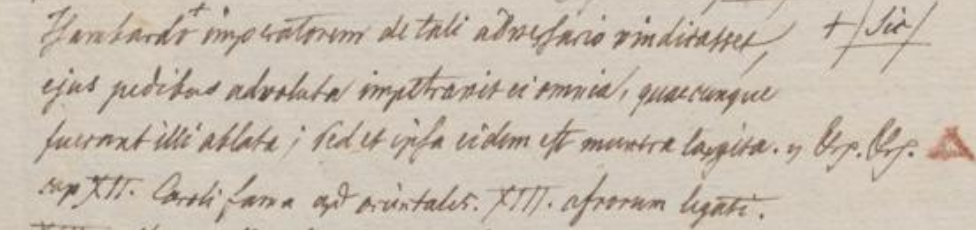 Isambardo + imperatorem de tali adversario vindicasset, + / Sic /
ejus pedibus advoluta impetravit ei omnia, quaecunque
fuerant illi ablata; sed et ipsa eidem est munera largita.
cap XII. Caroli fama apd orientales. XIII. afrorum legati.